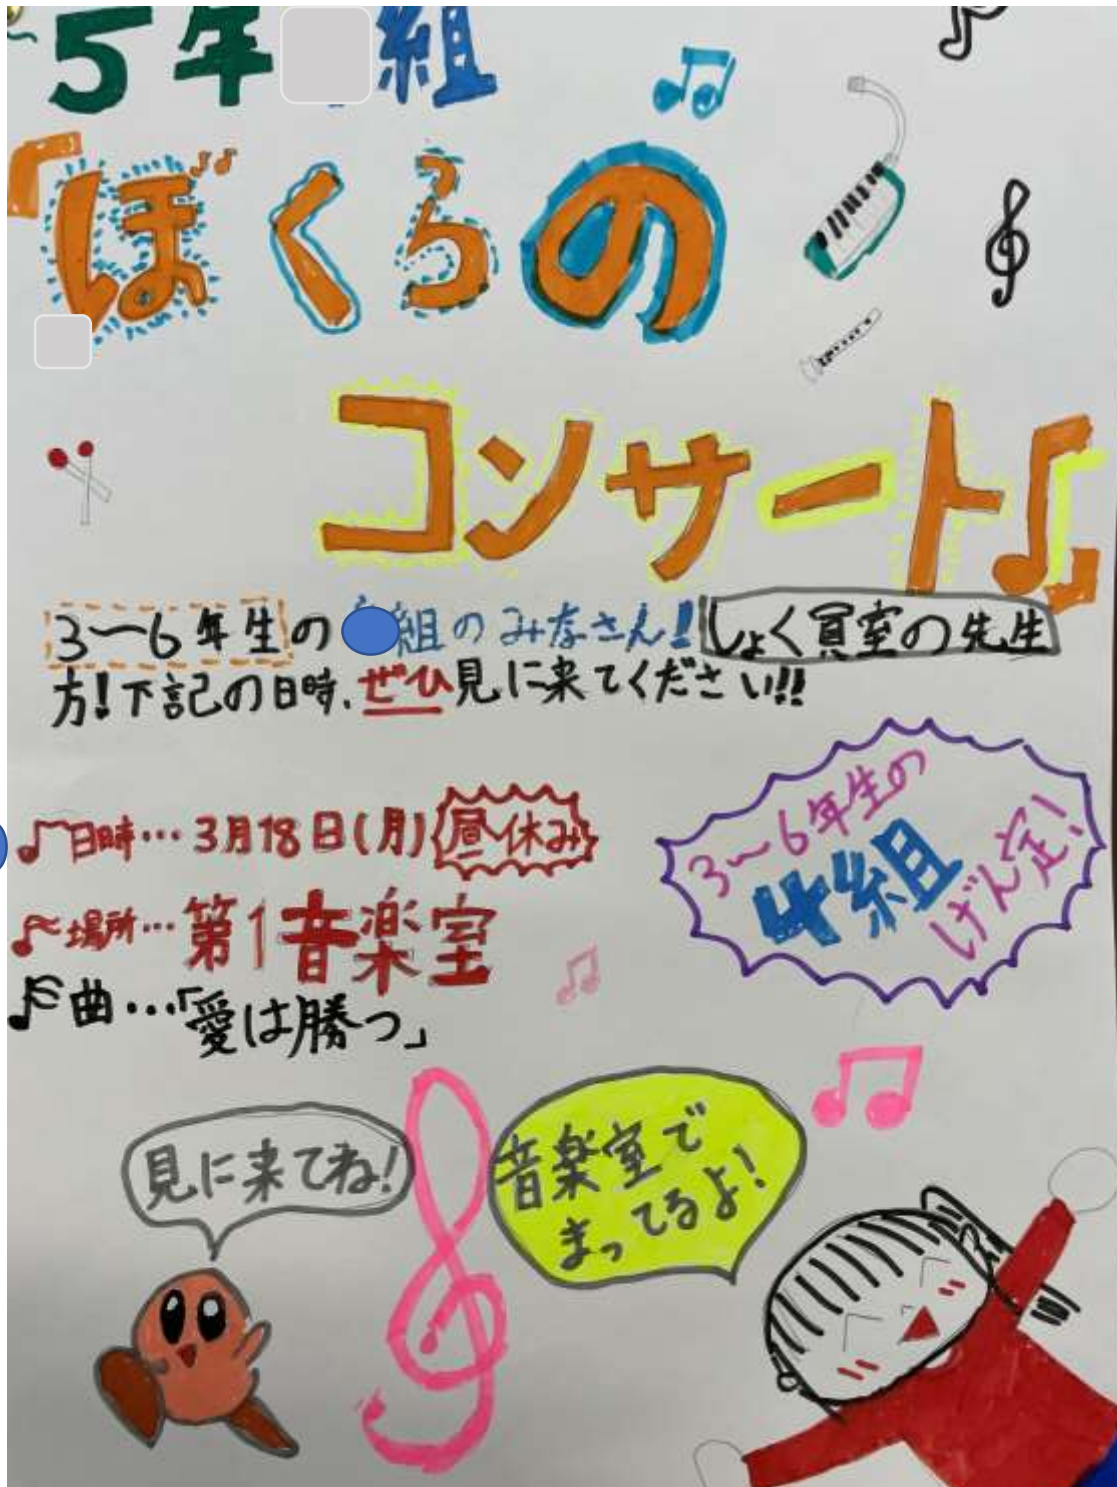 5年 組
「ぼくらの
コンサート♪」
3〜6年生の 組のみなさん!!しょく員室の先生
方!下記の日時、ぜひ見に来てください!!
♪日時…3月18日(月)昼休み
♪場所…第1音楽室
♪曲…「愛は勝つ」
3〜6年生の
4組
げん定!
見に来てね!
音楽室で
まってるよ!